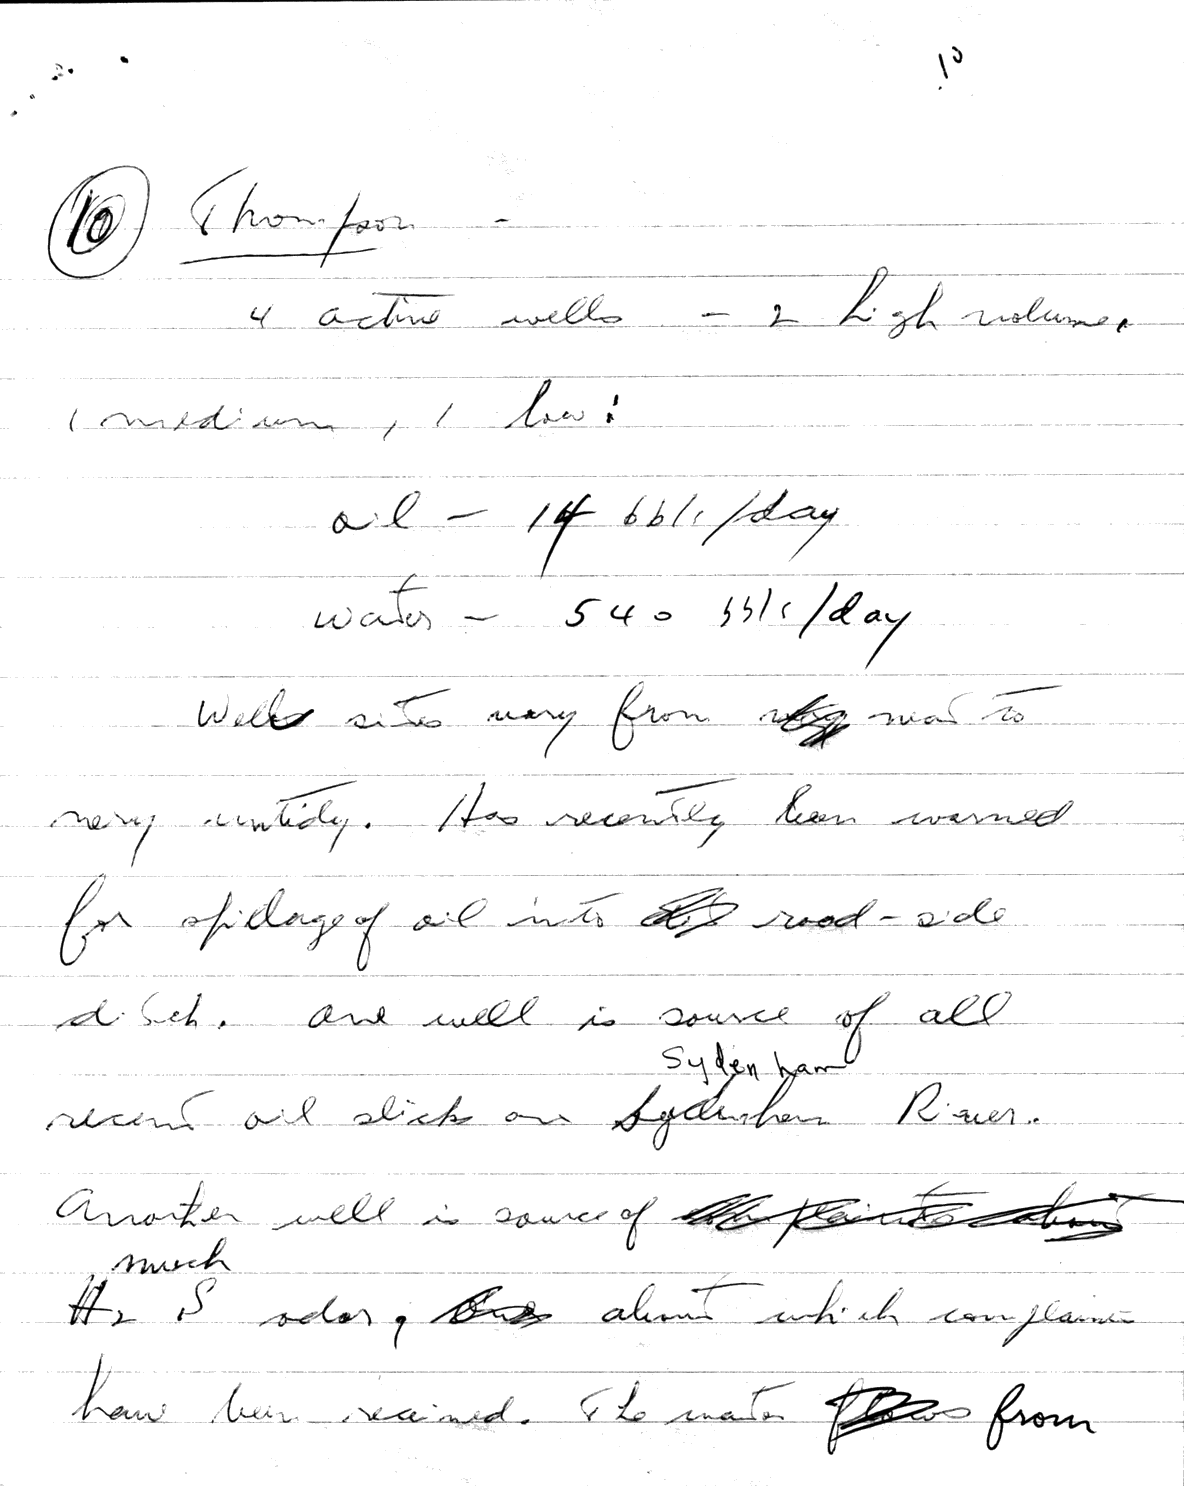 10
10 Thompson -
4 active wells - 2 high volume,
1 medium, 1 low:
oil - 14 bbls/day
water - 540 bbls/day
Well sites vary from neat to
very untidy. Has recently been warned
for spillage of oil into road-side
ditch. One well is source of all
Sydenham
recent oil slick on Sydenham River.
Another well is source of
much
H2S odor, about which complaints
have been received. The water from